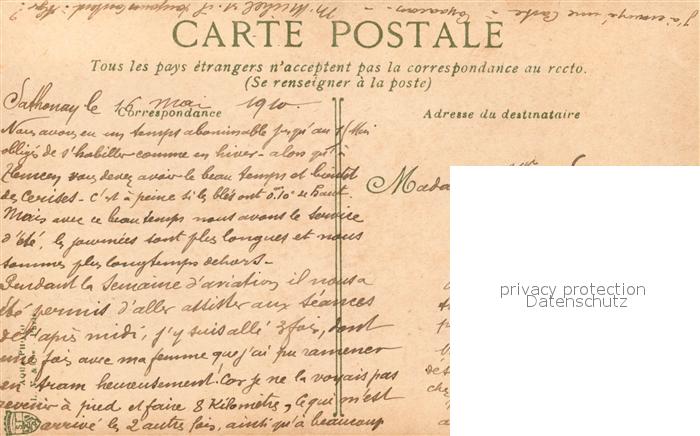 J'ai envoyé une Carte à
CARTE POSTALE
Tous les pays étrangers n'acceptent pas la correspondance au recto.
(Se renseigner à la poste)
Sathonay le 16 Mai 1910.
Correspondance
Adresse du destinataire
Nous avons eu un temps abominable jusqu'au 8/Mai
obligés de s'habiller comme en hiver - alors qu'à
Tlemcen vous devez avoir le beau temps et bientôt
des Cerises - c'est à peine si les blés ont 0,10c de haut.
Mais avec ce beau temps nous avons le service
d'été, les journées sont plus longues et nous
sommes plus longtemps dehors -
Pendant la Semaine d'aviation il nous a
été permis d'aller assister aux séances
de l'après midi, j'y suis allé 3 fois, dont
une fois avec ma femme que j'ai pu ramener
en tram heureusement. Car je ne la voyais pas
revenir à pied et faire 8 Kilomètres, Ce qui m'est
arrivé les 2 autres fois, ainsi qu'à beaucoup
Mada
privacy protection
Datenschutz